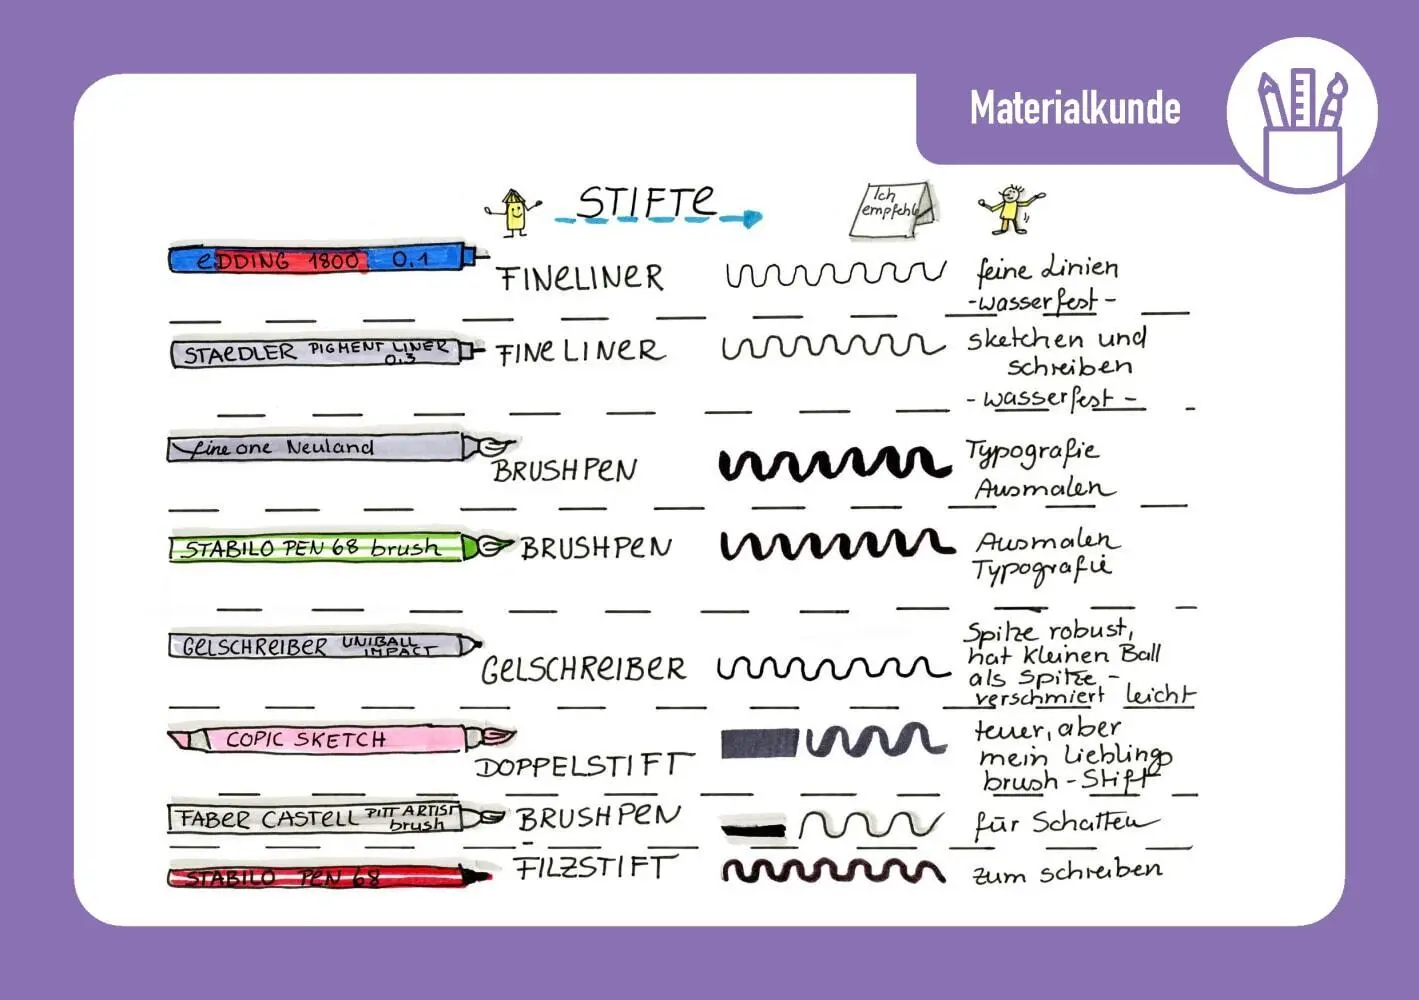 Materialkunde
STIFTE
Ich
empfehle
eDDING 1800 0.1
FINELINER
feine Linien
-wasserfest-
STAEDLER PIGMENT LINER
0.3
FINELINER
sketchen und
schreiben
- wasserfest -
fine one Neuland
BRUSHPEN
Typografie
Ausmalen
STABILO PEN 68 brush
BRUSHPEN
Ausmalen
Typografie
GELSCHREIBER UNIBALL
IMPACT
GELSCHREIBER
Spitze robust,
hat kleinen Ball
als Spitze -
verschmiert leicht
COPIC SKETCH
DOPPELSTIFT
teuer, aber
mein Lieblings
brush-Stift
FABER CASTELL PITT ARTIST
brush
BRUSHPEN
für Schatten
STABILO PEN 68
FILZSTIFT
zum schreiben